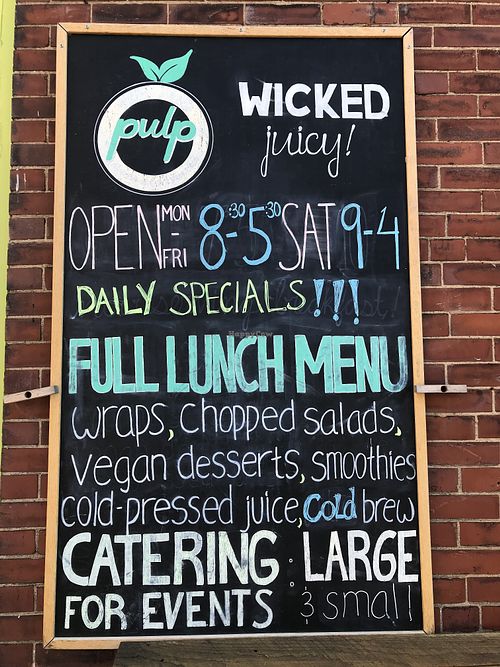 pulp
WICKED
juicy!
OPEN MON - FRI 8:30-5:30 SAT 9-4
DAILY SPECIALS!!!
FULL LUNCH MENU
wraps, chopped salads,
vegan desserts, smoothies
cold-pressed juice, cold brew
CATERING : LARGE
FOR EVENTS & small